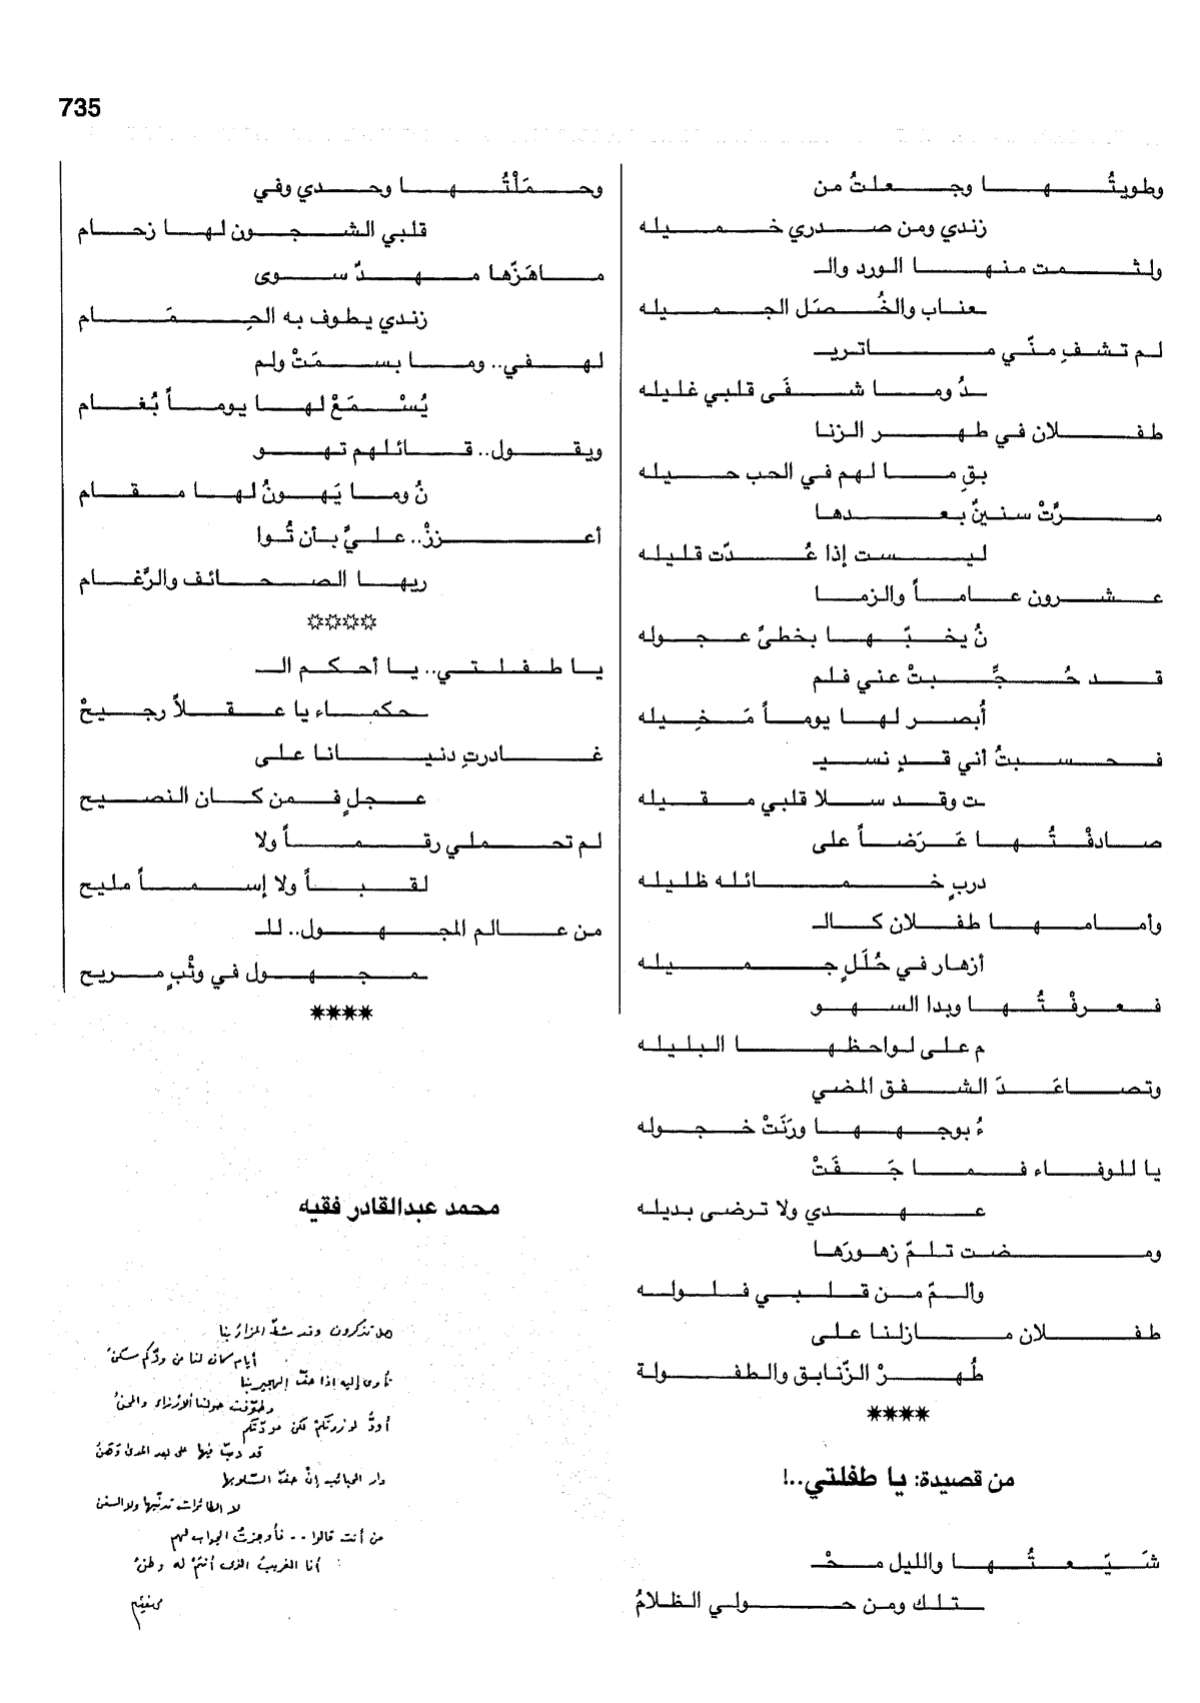 735
وطويتُها وجعلتُ من
زندي ومن صدري خميله
ولثمت منها الورد والـ
ـعناب والخُصَل الجميله
لم تشفِ منّي ماتريـ
ـدُ وما شفَى قلبي غليله
طفلان في طهر الزنا
بقِ ما لهم في الحب حيله
مرَّتْ سنينٌ بعدها
ليست إذا عُدّت قليله
عشرون عاماً والزما
نُ يخبّها بخطىً عجوله
قد حُجِّبتْ عني فلم
أُبصر لها يوماً مَخِيله
فحسبتُ أني قدٍ نسيـ
ـت وقد سلا قلبي مقيله
صادفْتُها عَرَضاً على
دربٍ خمائله ظليله
وأمامها طفلان كالـ
أزهار في حُلَلٍ جميله
فعرفْتُها وبدا السهو
م على لواحظها البليله
وتصاعَدَ الشفق المضي
ءُ بوجهها ورَنَتْ خجوله
يا للوفاء فما جَفَتْ
عهدي ولا ترضى بديله
ومضت تلمّ زهورَها
وألمّ من قلبي فلوله
طفلان مازلنا على
طُهرْ الزّنابق والطفولة
****
من قصيدة: يا طفلتي..!
شَيّعتُها والليل محْـ
ـتلك ومن حولي الظلامُ
وحمَلْتُها وحدي وفي
قلبي الشجون لها زحام
ماهَزّها مهدٌ سوى
زندي يطوف به الحِمَام
لهفي.. وما بسمَتْ ولم
يُسْمَعْ لها يوماً بُغام
ويقول.. قائلهم تهو
نُ وما يَهونُ لها مقام
أعززْ.. عليَّ بأن تُوا
ريها الصحائف والرَّغام
****
يا طفلتي.. يا أحكم الـ
ـحكماء يا عقلاً رجيحْ
غادرتِ دنيانا على
عجلٍ فمن كان النصيح
لم تحملي رقماً ولا
لقباً ولا إسماً مليح
من عالم المجهول.. للـ
ـمجهول في وثْبٍ مريح
****
محمد عبدالقادر فقيه
هل تذكرون وقد شطّ المزارُ بنا
أيام كان لنا من ودّكم سكنُ
نأوي إليه اذا حفّ الهجير بنا
وطوّفت حولنا الأرزاء والمحنُ
أودُّ لو زرتكمْ لكن مودّتكم
قد دبّ فيها على بعد المدى وَهَنُ
دار الحبائب إنْ حفّ السّلو بها
لا الطائرات تدنّيها ولا السفن
من أنت قالوا .. فأوجزتُ الجواب لهم
أنا الغريبُ الذي أنتمْ له وطنُ